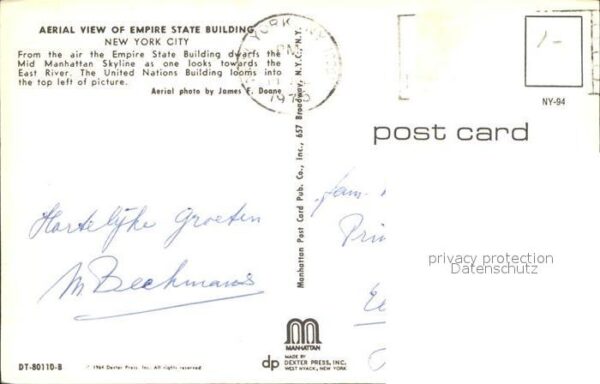 AERIAL VIEW OF EMPIRE STATE BUILDING
NEW YORK CITY
From the air the Empire State Building dwarfs the
Mid Manhattan Skyline as one looks towards the
East River. The United Nations Building looms into
the top left of picture.
Aerial photo by James E. Doane
YORK, NY
PM
Hartelijke Groeten
M Beckmans
DT-80110-B
© 1964 Dexter Press, Inc. All rights reserved
Manhattan Post Card Pub. Co., Inc., 657 Broadway, N.Y.C., N.Y.
MANHATTAN
dp
MADE BY
DEXTER PRESS, INC.
WEST NYACK, NEW YORK
1-
NY-94
post card
Fam.
Prin
privacy protection
Datenschutz